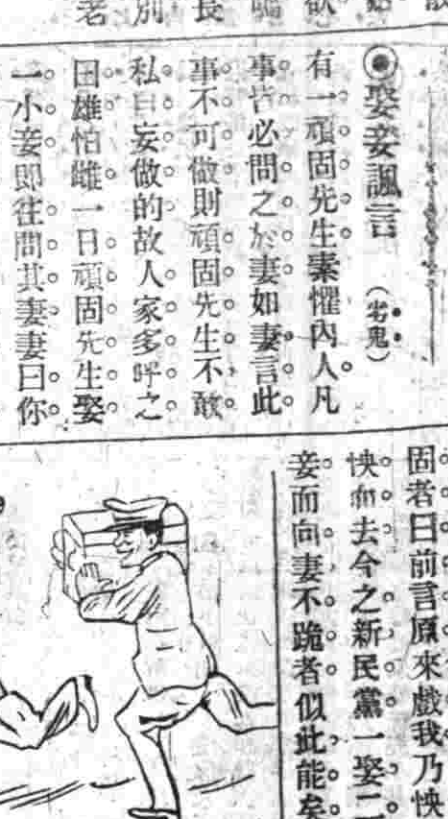 ◉娶妾諷言 (劣鬼)
有一頑固先生素懼內人凡
事皆必問之於妻如妻言此
事不可做則頑固先生不敢
私自妄做的故人家多呼之
田雄怕雌一日頑固先生娶
一小妾即往問其妻妻曰你
固者曰前言原來戲我乃怏
怏而去今之新民黨一娶二
妾而向妻不跪者似此能矣